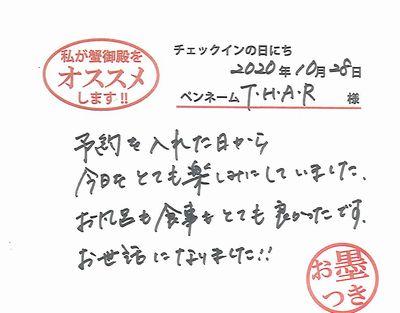 私が蟹御殿を
オススメ
します!!
チェックインの日にち
2020年10月28日
ペンネーム T・H・A・R 様
予約を入れた日から
今日をとても楽しみにしていました。
お風呂も食事もとても良かったです。
お世話になりました!!
お墨
つき